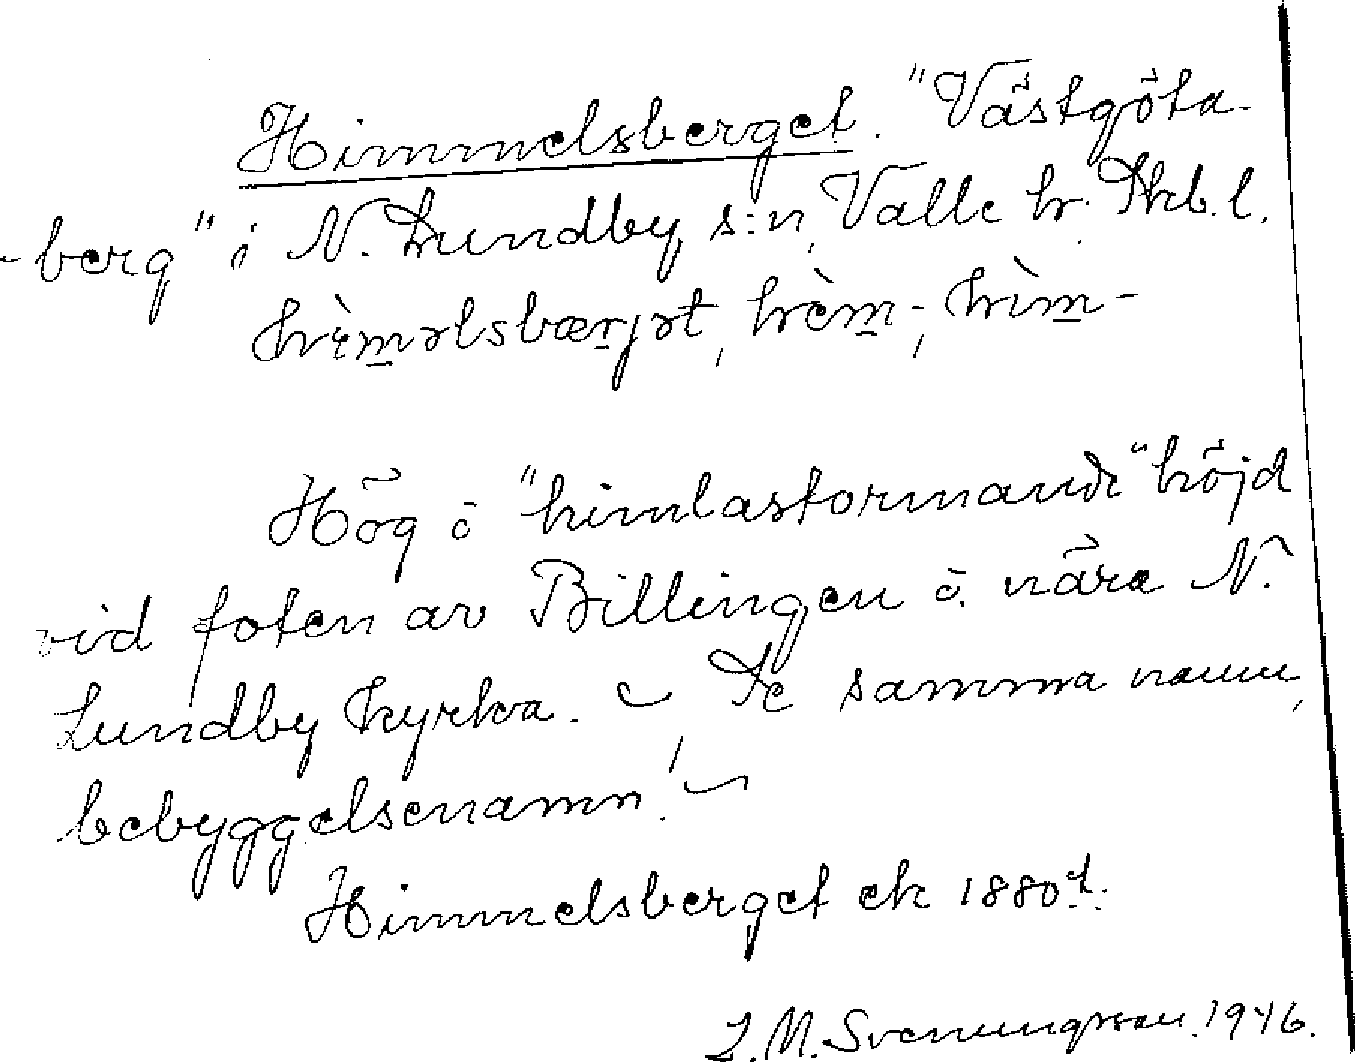 Himmelsberget. "Västgöta-
-berg" i N. Lundby s:n, Valle hr. Skb. l.
hìm̲əlsbær̲jət, hèm̲-, hìm̲-
Hög o "himlastormande" höjd
vid foten av Billingen o. nära N.
Lundby kyrka. ~ Se samma namn,
bebyggelsenamn! ~
Himmelsberget ek 1880t.
S. M. Svenungsson. 1946.